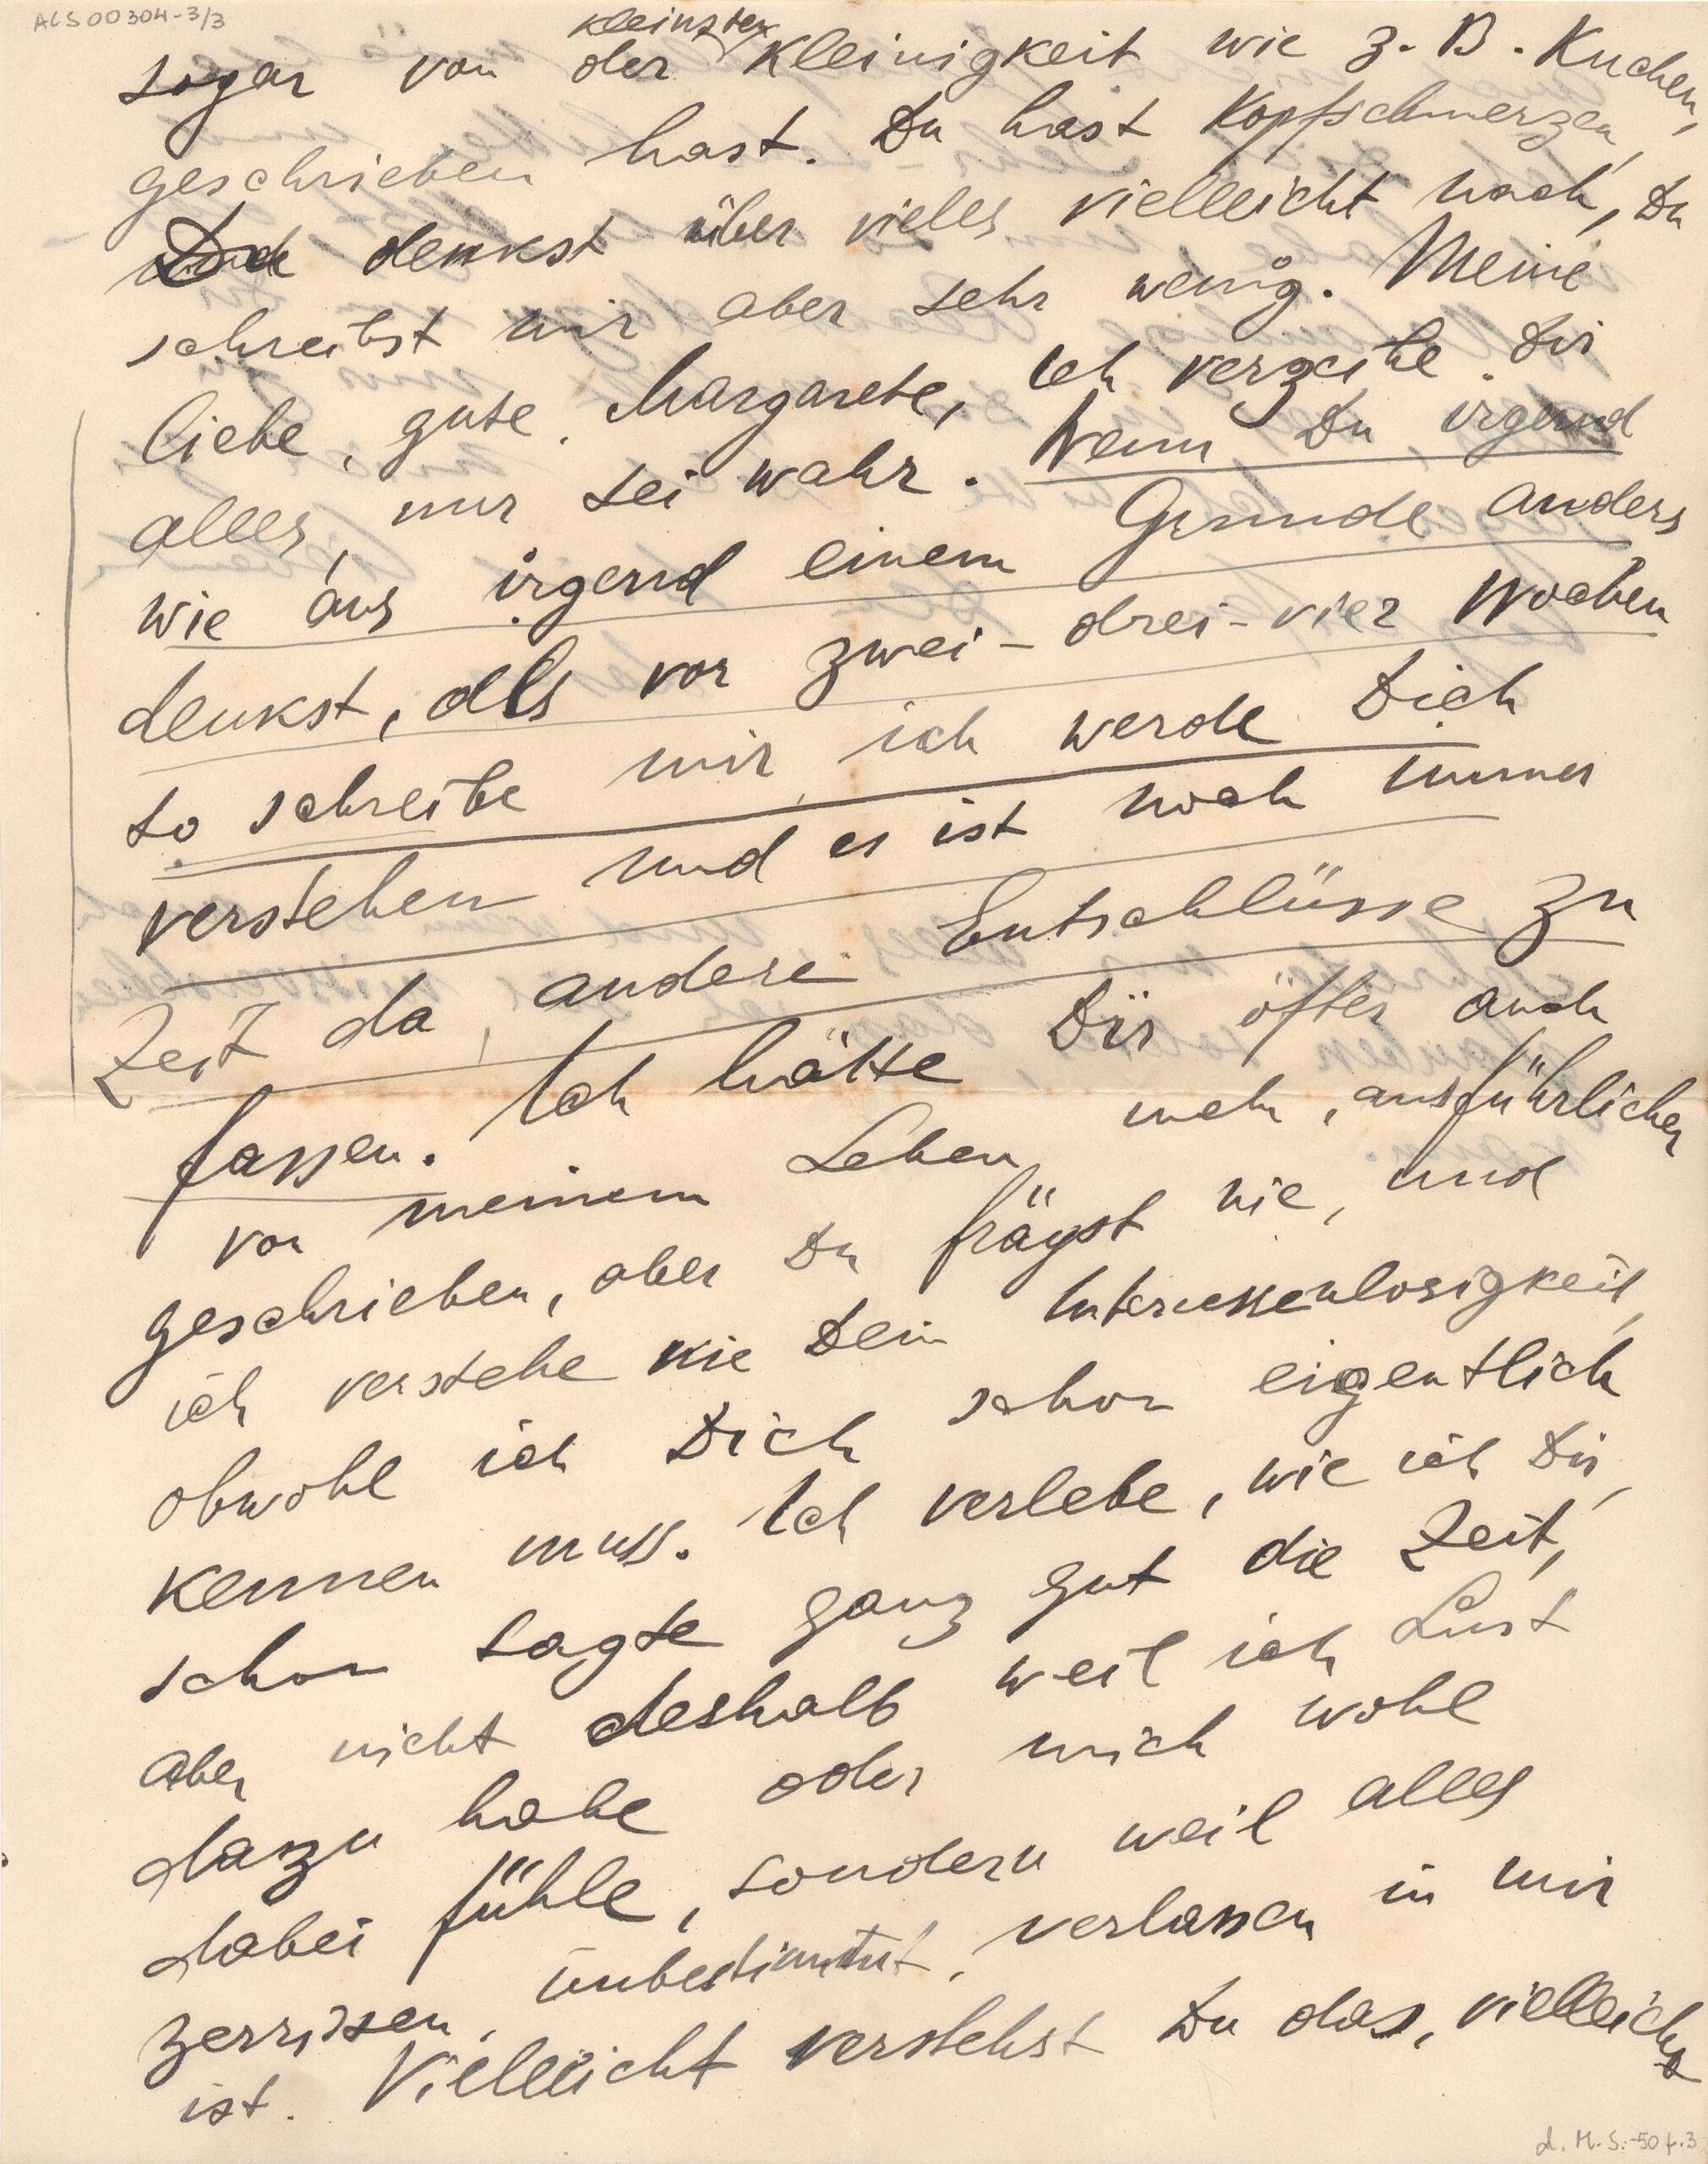 ACS 00304-3/3
kleinster
sogar von der Kleinigkeit wie z. B. Kuchen,
geschrieben hast. Du hast Kopfschmerzen,
denkst über vieles vielleicht nach, Du
schreibst mir aber sehr wenig. Meine
liebe, gute Margarete, ich verzeihe Dir
alles, nur sei wahr. Wenn Du irgend
wie aus irgend einem Grunde anders
denkst, als vor zwei - drei - vier Wochen
so schreibe mir, ich werde Dich
verstehen und es ist noch immer
Zeit da, andere Entschlüsse zu
fassen. Ich hätte Dir öfter auch
von meinem Leben mehr, ausführlicher
geschrieben, aber Du frägst nie, und
ich verstehe nie Dein Interessenlosigkeit,
obwohl ich Dich schon eigentlich
kennen muss. Ich verlebe, wie ich Dir,
schon sagte ganz gut die Zeit,
aber nicht deshalb weil ich Lust
dazu habe oder mich wohl
dabei fühle, sondern weil alles
zerrissen, unbestimmt, verlassen in mir
ist. Vielleicht verstehst Du das, vielleicht
d. M. S. -50 f.3